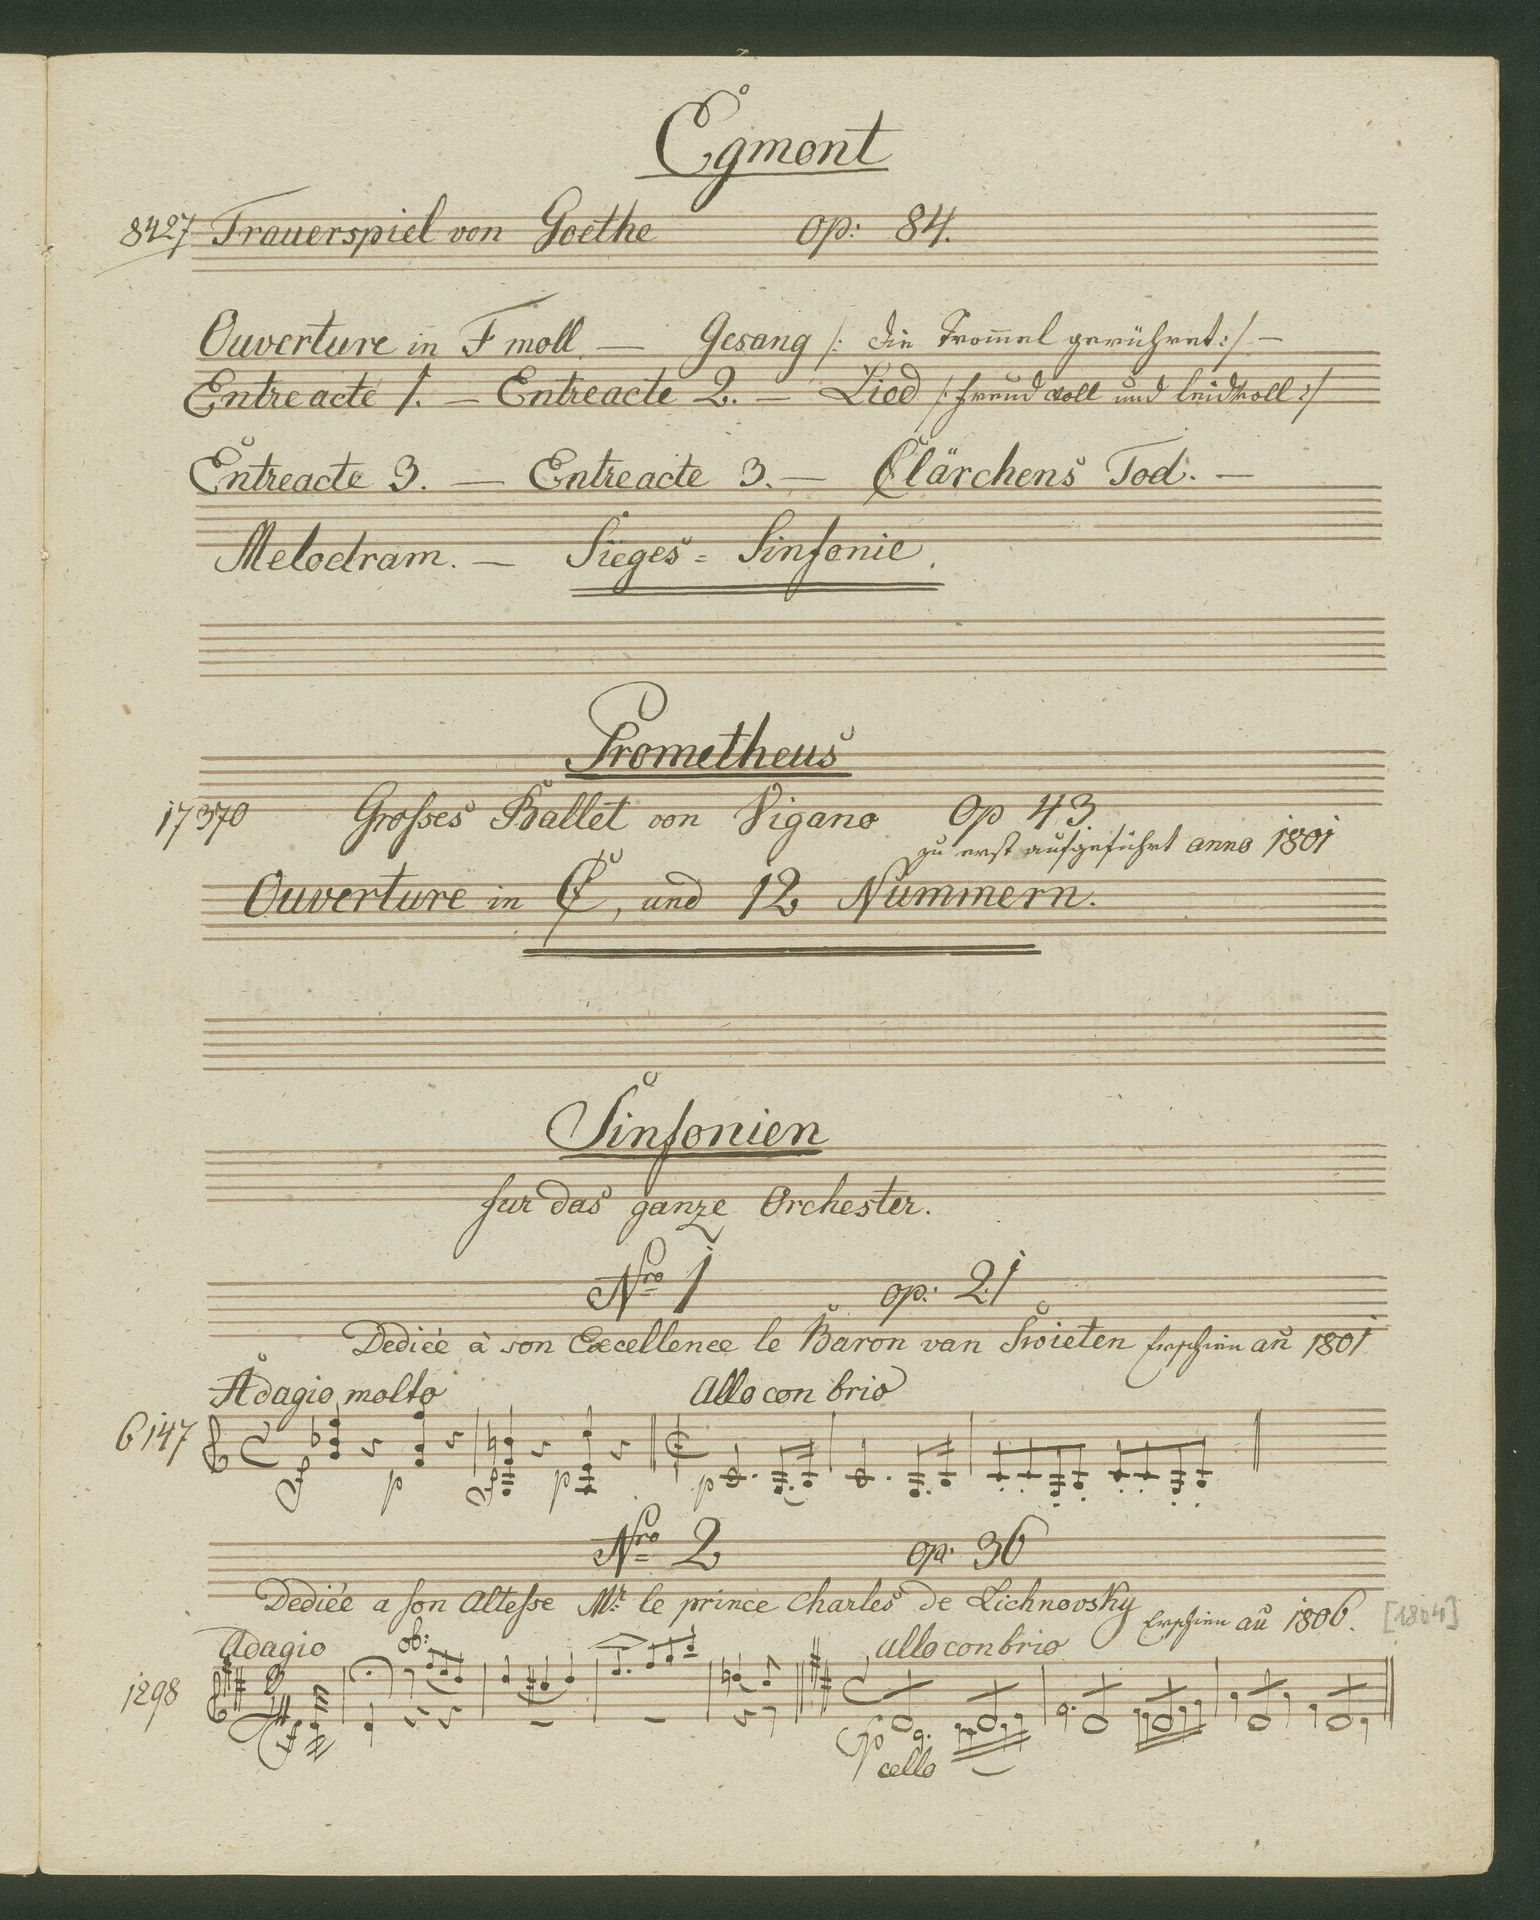 Egmont
8427 Trauerspiel von Goethe op: 84.
Ouverture in F moll. — Gesang /: die Trom̄el gerühret :/ —
Entreacte 1. — Entreacte 2. — Lied /: freudvoll und leidvoll :/
Entreacte 3. — Entreacte 3. — Clärchens Tod. —
Melodram. — Sieges = Sinfonie.
Prometheus
17370 Grosses Ballet von Vigano Op 43
zu erst aufgeführt anno 1801
Ouverture in C, und 12 Nummern.
Sinfonien
fur das ganze Orchester.
Nro 1 op: 21
Dediée à son Excellence le Baron van Swieten Erschien aũ 1801
Adagio molto Allo con brio
6147
fp p fp p p
Nro 2 op: 36
Dediée a son Altesse Mr. le prince Charles de Lichnovsky Erschien aũ 1806. [1804]
Adagio ob: allo con brio
1298
ff p
cello